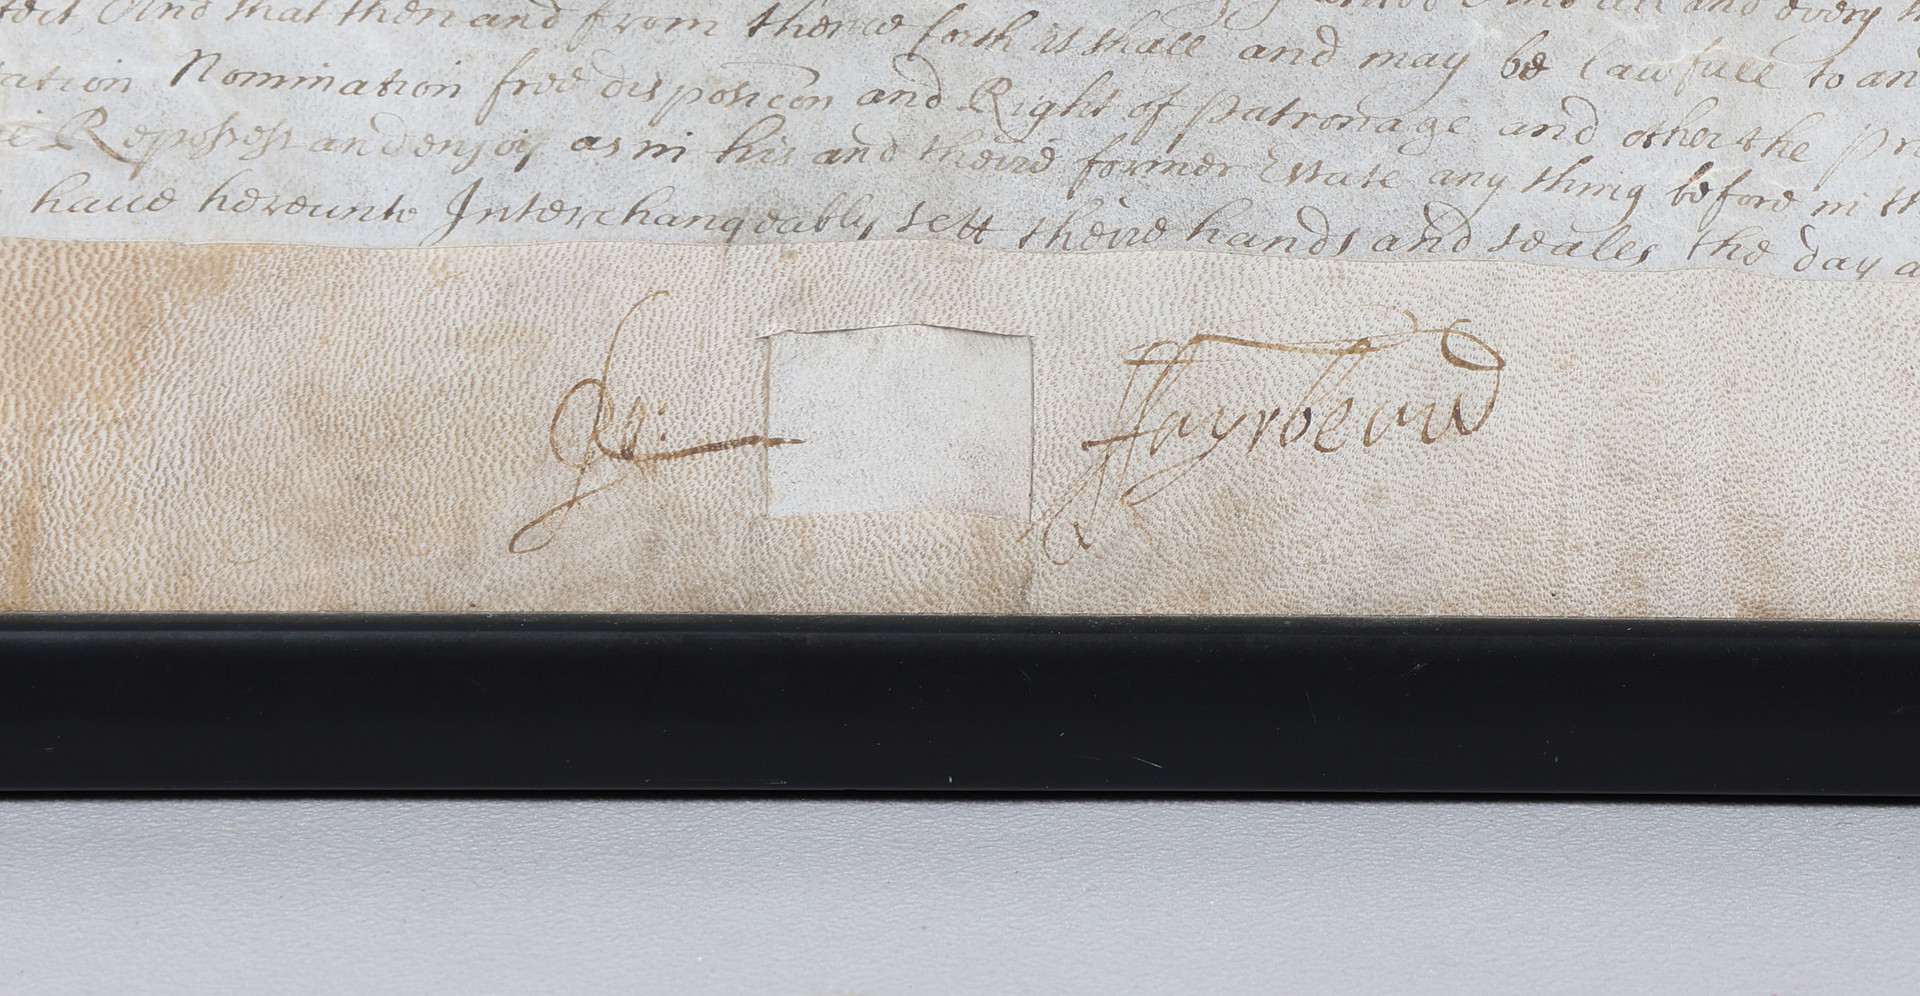 And that then and from thence forth it shall and may be lawfull to an
Nomination free disposicon and Right of patronage and other the pr
Repossess and enjoy as in his and theire former Estate any thing before in th
have hereunto Interchangeably sett theire hands and seales the day a
ffayrbeard